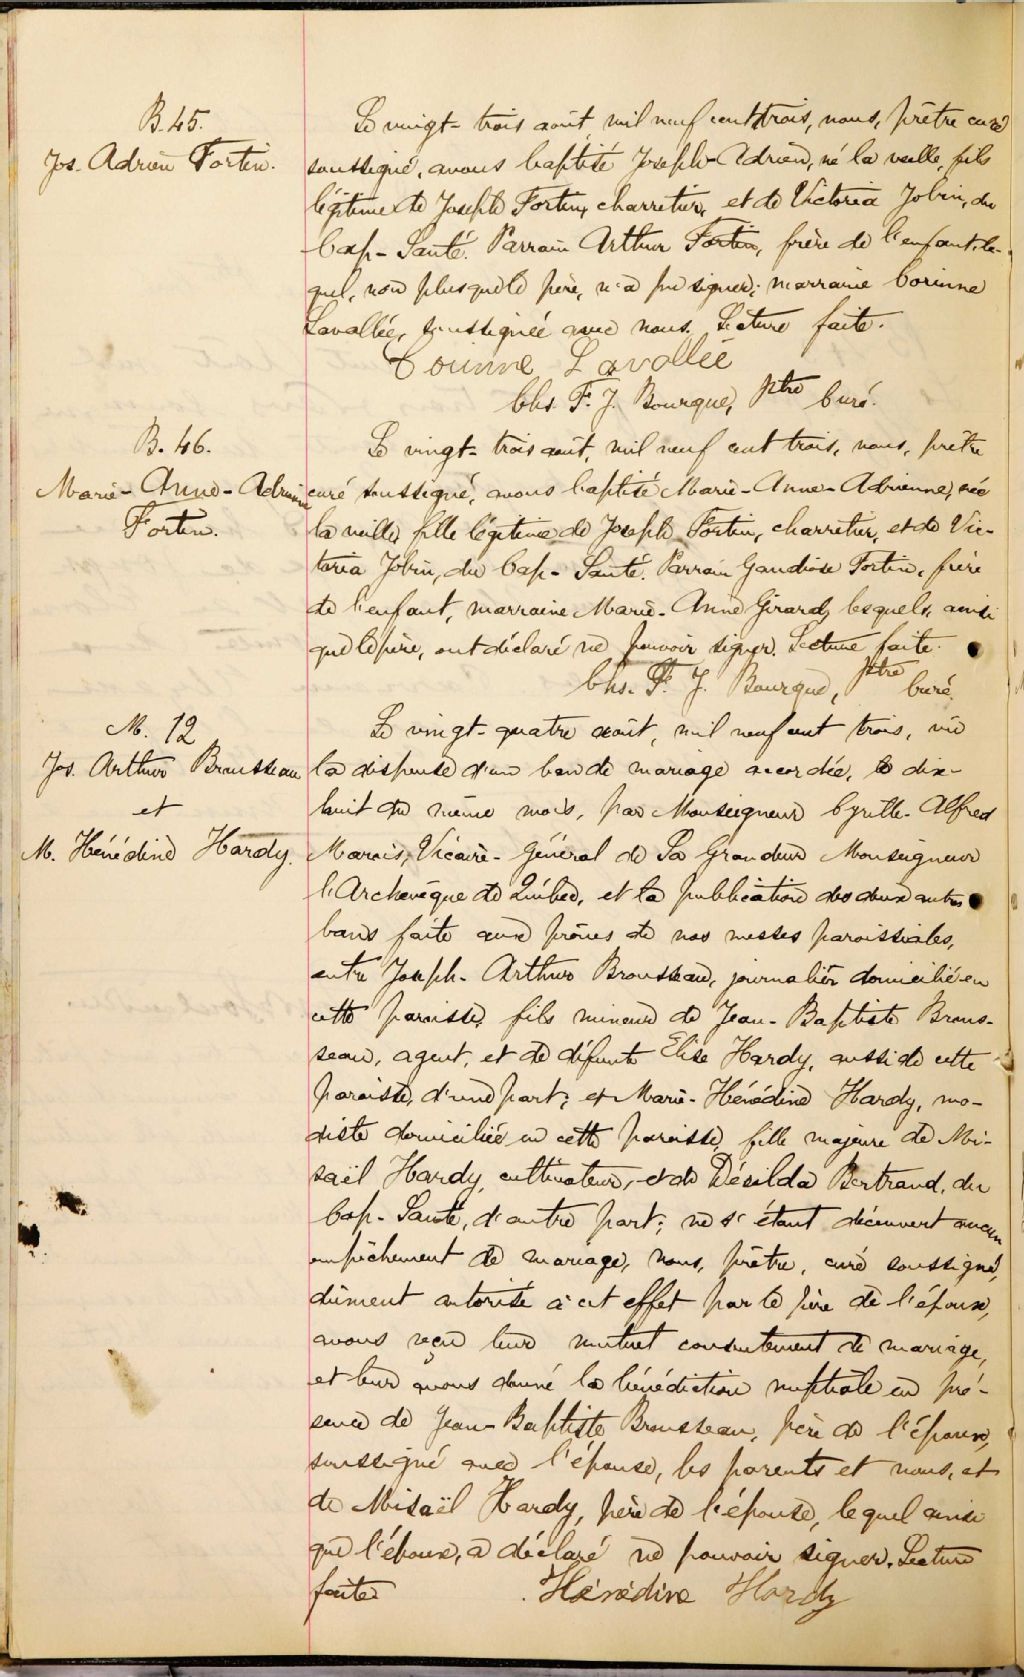 B. 45.
Jos. Adrien Fortin.
Le vingt-trois août, mil neuf cent trois, nous, prêtre curé
soussigné, avons baptisé Joseph-Adrien, né la veille, fils
légitime de Joseph Fortin, charretier, et de Victoria Jobin, du
Cap-Santé. Parrain Arthur Fortin, frère de l'enfant, le-
quel, non plus que le père, n'a pu signer; marraine Corinne
Lavallée, soussignée avec nous. Lecture faite.
Corinne Lavallée
Chs. F. J. Bourque, Ptre Curé.
B. 46.
Marie-Anne-Adrienne
Fortin.
Le vingt-trois août, mil neuf cent trois, nous, prêtre
curé soussigné, avons baptisé Marie-Anne-Adrienne, née
la veille, fille légitime de Joseph Fortin, charretier, et de Vic-
toria Jobin, du Cap-Santé. Parrain Gaudiose Fortin, frère
de l'enfant, marraine Marie-Anne Girard, lesquels, ainsi
que le père, ont déclaré ne pouvoir signer. Lecture faite.
Chs. F. J. Bourque, Ptre Curé
M. 12
Jos. Arthur Brousseau
et
M. Hénédine Hardy.
Le vingt-quatre août, mil neuf cent trois, vu
la dispense d'un ban de mariage accordée, le dix-
huit du même mois, par Monseigneur Cyrille-Alfred
Marois, Vicaire-Général de Sa Grandeur Monseigneur
l'Archevêque de Québec, et la publication des deux autres
bans faite aux prônes de nos messes paroissiales,
entre Joseph-Arthur Brousseau, journalier domicilié en
cette paroisse, fils mineur de Jean-Baptiste Brous-
seau, agent, et de défunte Elise Hardy, aussi de cette
paroisse, d'une part; et Marie-Hénédine Hardy, mo-
diste domiciliée en cette paroisse, fille majeure de Mi-
saël Hardy, cultivateur, et de Désilda Bertrand, du
Cap-Santé, d'autre part; ne s'étant découvert aucun
empêchement de mariage, nous, prêtre, curé soussigné,
dûment autorisé à cet effet par le père de l'époux,
avons reçu leur mutuel consentement de mariage,
et leur avons donné la bénédiction nuptiale en pré-
sence de Jean-Baptiste Brousseau, père de l'époux,
soussigné avec l'épouse, les parents et nous, et
de Misaël Hardy, père de l'épouse, lequel ainsi
que l'époux, a déclaré ne pouvoir signer. Lecture
faite
Hénédine Hardy